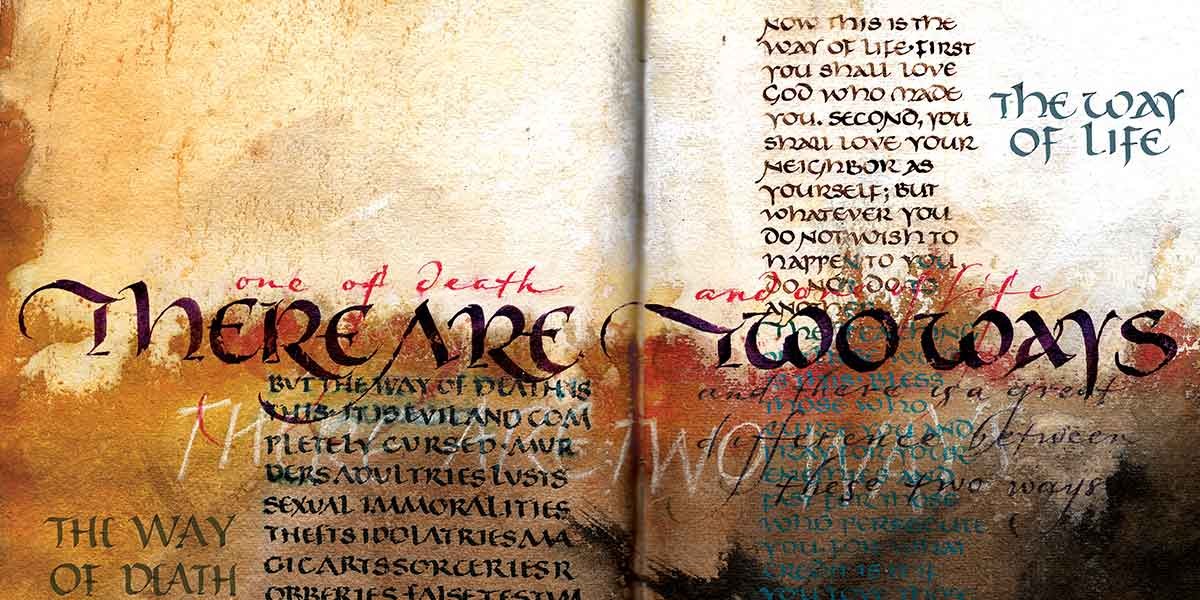 one of death and one of life
THERE ARE TWO WAYS
and there is a great
difference between
these two ways
THE WAY
OF DEATH
BUT THE WAY OF DEATH IS
THIS·IT IS EVIL AND COM
PLETELY CURSED·MUR
DERS ADULTRIES LUSTS
SEXUAL IMMORALITIES
THEFTS IDOLATRIES MA
GIC ARTS SORCERIES R
OBBERIES FALSE TESTIM
THERE ARE TWO WAYS
THE WAY
OF LIFE
NOW THIS IS THE
WAY OF LIFE·FIRST
YOU SHALL LOVE
GOD WHO MADE
YOU. SECOND, YOU
SHALL LOVE YOUR
NEIGHBOR AS
YOURSELF; BUT
WHATEVER YOU
DO NOT WISH TO
HAPPEN TO YOU
DO NOT DO TO
THE TEACHING
IS THIS·BLESS
THOSE WHO
CURSE YOU AND
PRAY FOR YOUR
ENEMIES AND
FAST FOR THOSE
WHO PERSECUTE
YOU FOR WHAT
CREDIT IS IT IF
YOU LOVE THOSE